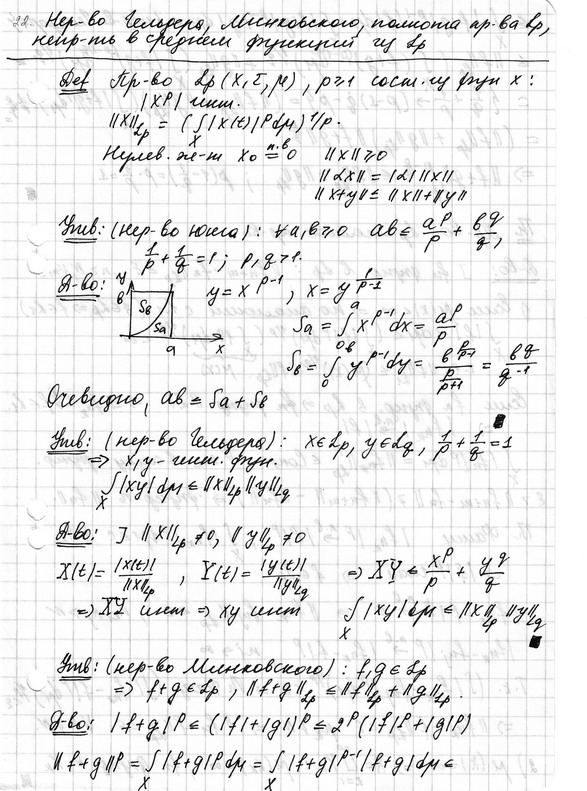 22. Нер-во Гельдера, Минковского, полнота пр-ва Lp,
непр-ть в среднем функций из Lp
Def Пр-во Lp(X,Σ,μ), p≥1 сост. из фун x:
|x^p| инт.
||x||_Lp = (∫_X |x(t)|^p dμ)^1/p.
Нулев. эл-т x₀ =^{п.в} 0 ||x||≥0
||αx|| = |α| ||x||
||x+y|| ≤ ||x||+||y||
Утв: (нер-во Юнга): ∀a,b≥0 ab ≤ a^p/p + b^q/q,
1/p + 1/q = 1; p,q>1.
Д-во: y b S_b S_a a x y = x^{p-1}, x = y^{1/(p-1)}
S_a = ∫_0^a x^{p-1} dx = a^p/p
S_b = ∫_0^b y^{p-1} dy = b^{p/(p-1)} / (p/(p+1)) = b^q/q^{-1}
Очевидно, ab ≤ S_a + S_b
Утв: (нер-во Гельдера): x∈Lp, y∈Lq, 1/p + 1/q = 1
⇒ x,y - инт. фун.
∫_X |xy| dμ ≤ ||x||_Lp ||y||_Lq
Д-во: ] ||x||_Lp ≠ 0, ||y||_Lp ≠ 0
X(t) = |x(t)|/||x||_Lp , Y(t) = |y(t)|/||y||_Lq ⇒ XY ≤ x^p/p + y^q/q
⇒ XY инт ⇒ xy инт ∫_X |xy| dμ ≤ ||x||_Lp ||y||_Lq
Утв: (нер-во Минковского): f,g∈Lp
⇒ f+g∈Lp, ||f+g||_Lp ≤ ||f||_Lp + ||g||_Lp.
Д-во: |f+g|^p ≤ (|f|+|g|)^p ≤ 2^p(|f|^p+|g|^p)
||f+g||^p = ∫_X |f+g|^p dμ = ∫_X |f+g|^{p-1} |f+g| dμ ≤